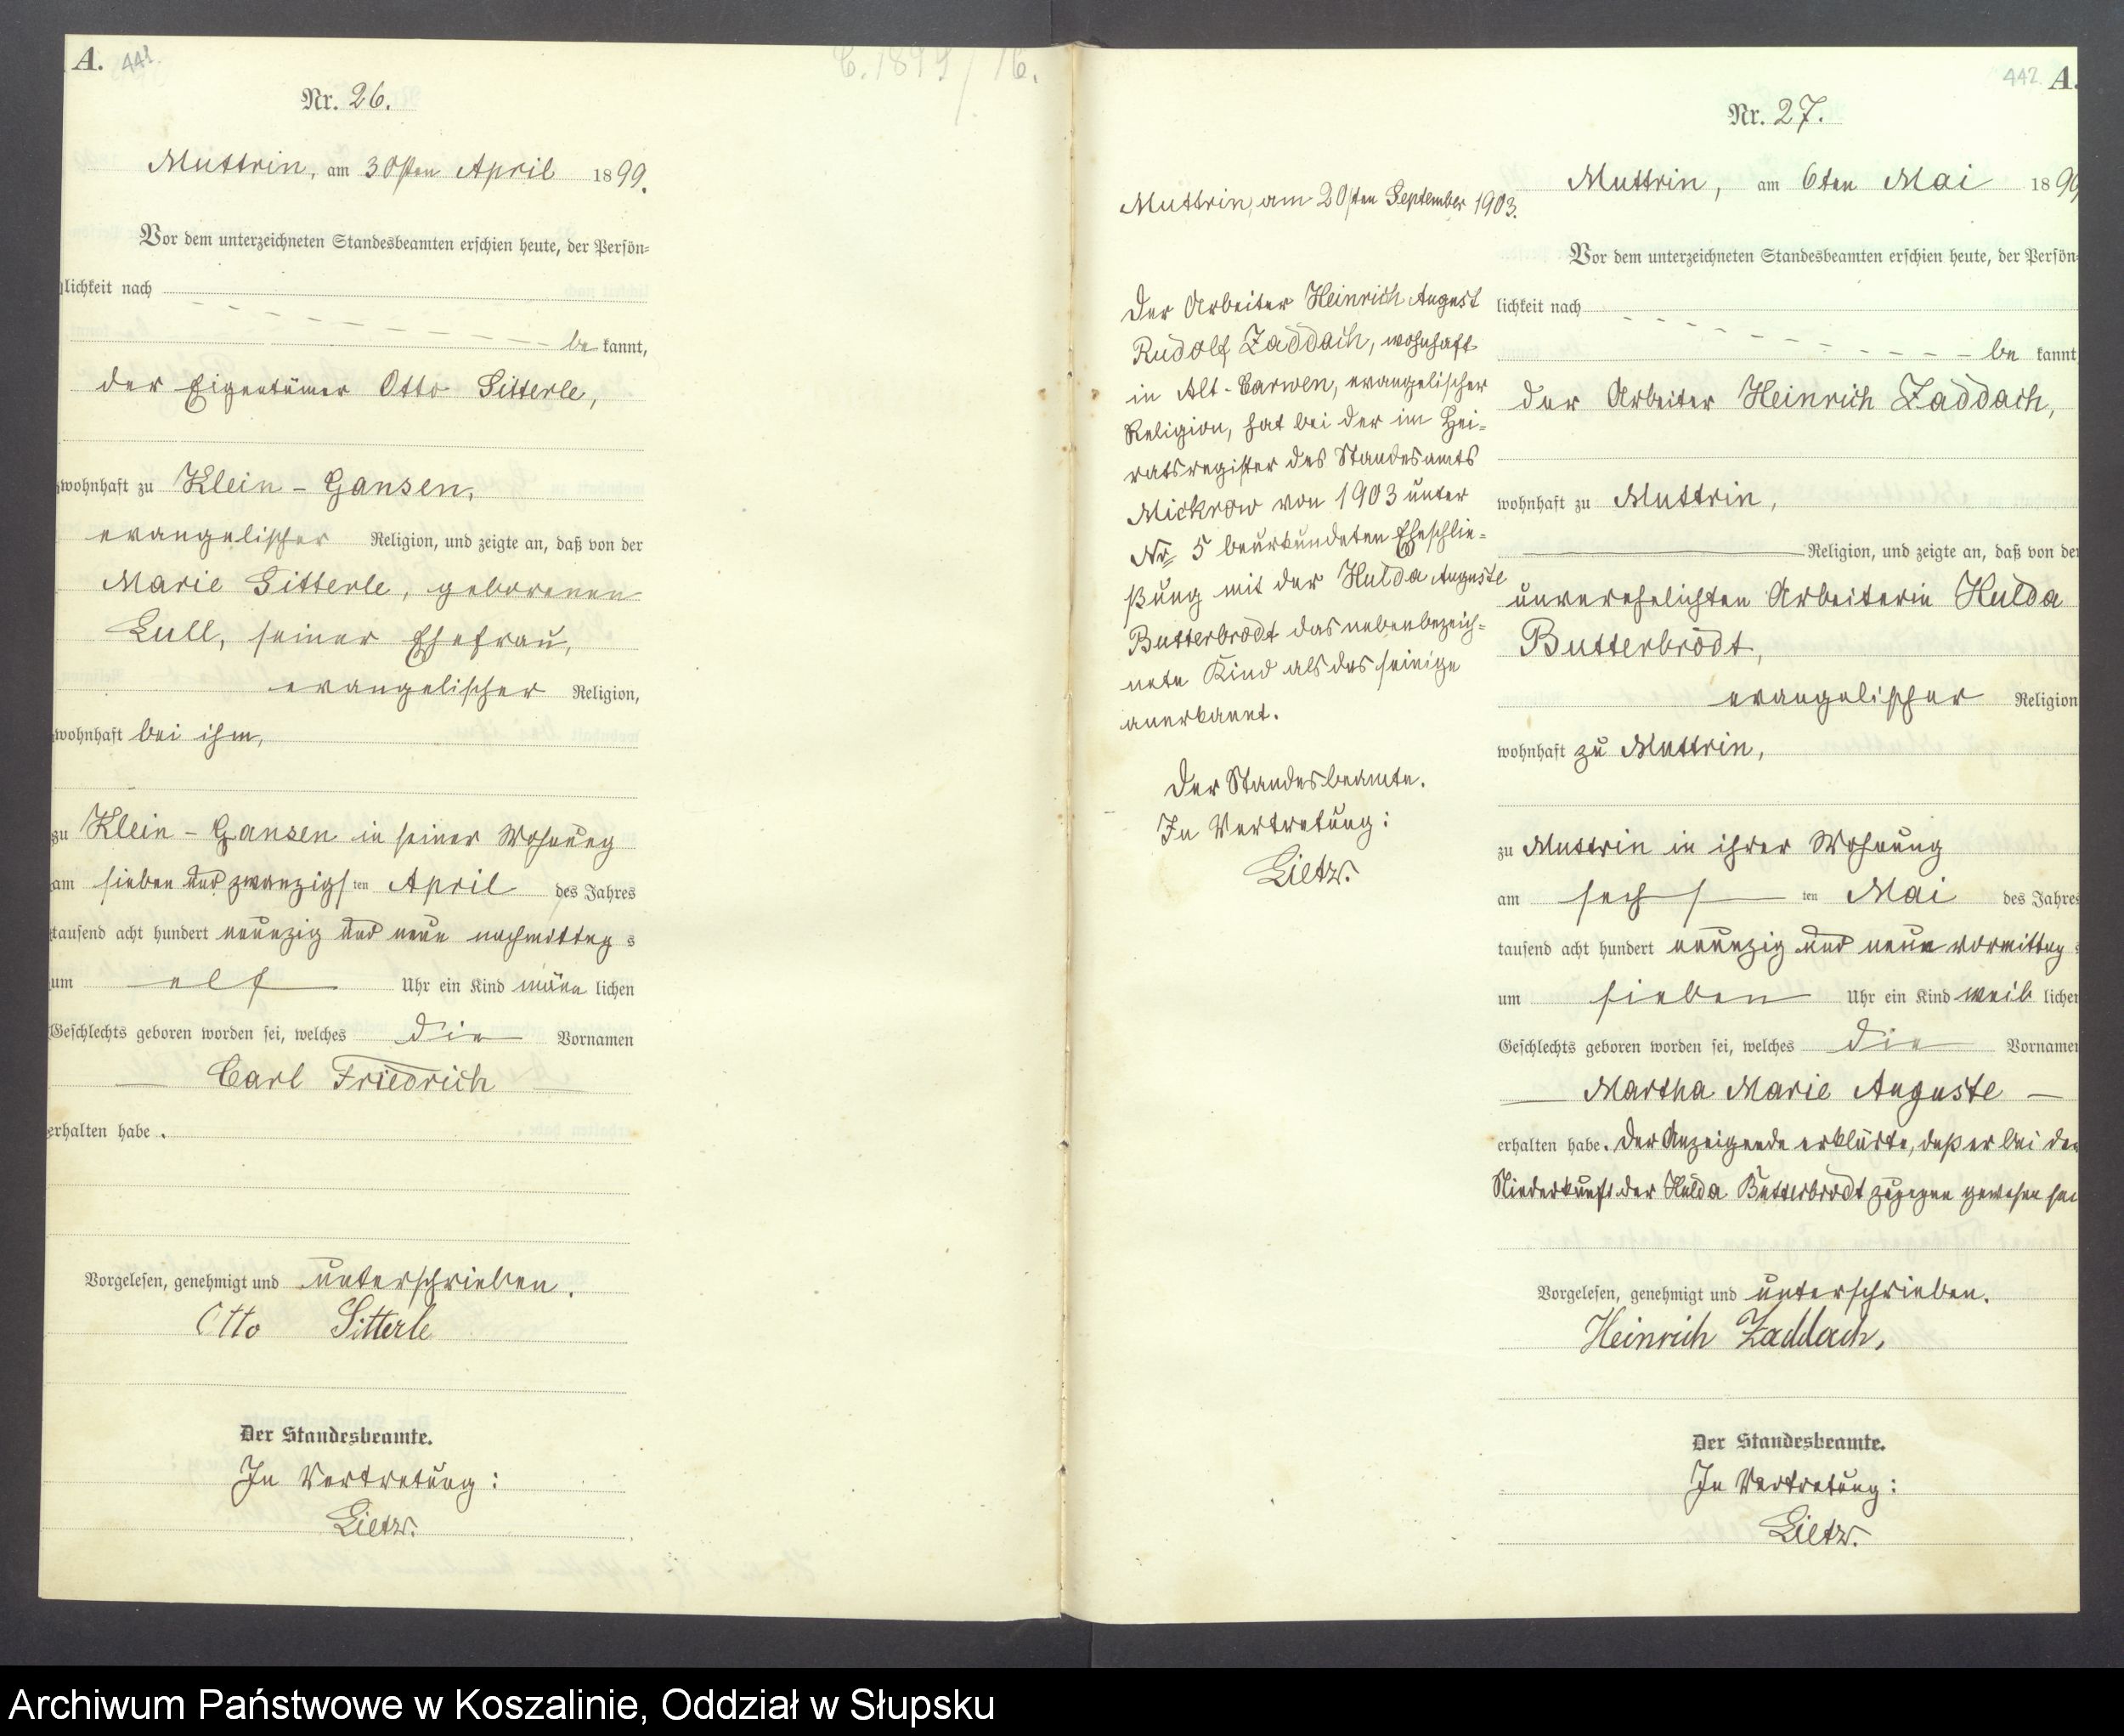 A. 441.
C. 1899/16.
Nr. 26.
Muttrin, am 30sten April 1899.
Vor dem unterzeichneten Standesbeamten erschien heute, der Persön-
lichkeit nach
be kannt,
der Eigentümer Otto Sitterle,
wohnhaft zu Klein-Gansen,
evangelischer Religion, und zeigte an, daß von der
Marie Sitterle, geborenen
Lull, seiner Ehefrau,
evangelischer Religion,
wohnhaft bei ihm,
zu Klein-Gansen in seiner Wohnung
am sieben und zwanzigs ten April des Jahres
tausend acht hundert neunzig und neun nachmittag s
um elf Uhr ein Kind männ lichen
Geschlechts geboren worden sei, welches die Vornamen
Carl Friedrich
erhalten habe.
Vorgelesen, genehmigt und unterschrieben.
Otto Sitterle
Der Standesbeamte.
In Vertretung:
Lietz.
Muttrin, am 20sten September 1903.
Der Arbeiter Heinrich August
Rudolf Zaddach, wohnhaft
in Alt-Carwen, evangelischer
Religion, hat bei der im Hei-
ratsregister des Standesamts
Mickrow von 1903 unter
Nr. 5 beurkundeten Eheschlie-
ßung mit der Hulda Auguste
Butterbrodt das nebenbezeich-
nete Kind als das seinige
anerkannt.
Der Standesbeamte.
In Vertretung:
Lietz.
442. A.
Nr. 27.
Muttrin, am 6ten Mai 1899
Vor dem unterzeichneten Standesbeamten erschien heute, der Persön-
lichkeit nach
be kannt
der Arbeiter Heinrich Zaddach,
wohnhaft zu Muttrin,
Religion, und zeigte an, daß von der
unverehelichten Arbeiterin Hulda
Butterbrodt,
evangelischer Religion
wohnhaft zu Muttrin,
zu Muttrin in ihrer Wohnung
am sechs ten Mai des Jahres
tausend acht hundert neunzig und neun vormittag s
um sieben Uhr ein Kind weib lichen
Geschlechts geboren worden sei, welches die Vornamen
Martha Marie Auguste
erhalten habe. Der Anzeigende erklärte, daß er bei der
Niederkunft der Hulda Butterbrodt zugegen gewesen sei
Vorgelesen, genehmigt und unterschrieben.
Heinrich Zaddach,
Der Standesbeamte.
In Vertretung:
Lietz.
Archiwum Państwowe w Koszalinie, Oddział w Słupsku